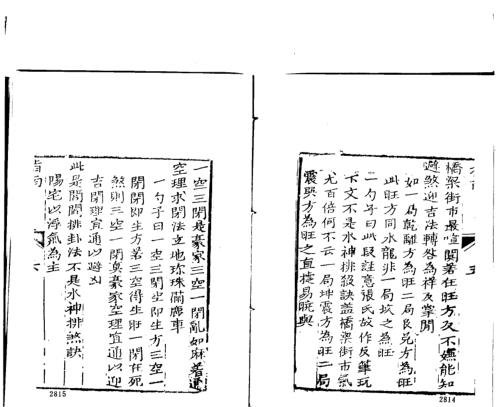 橋梁街市最喧閙著在旺方又不嫌能知
避煞迎吉法轉咎為祥反掌閒
如一局乾離方為旺二局艮兌方為旺
此旺方同水龍非一局坎之為旺
二勺子曰此段註意張氏故作反筆玩
下文不是水神排殺訣蓋橋梁街市氣
尤百倍何不云一局坤震方為旺二局
震巽方為旺之直捷易曉與
五
2814
一空三閉是豪家三空一閉亂如麻若遇
空理求閉法立地珍珠滿廳車
一勺子曰一空三閉坐即生方三空一
閉閉即生方若三空得生旺一閉在死
煞則三空一閉莫豪家空理宜通以迎
吉閉理宜通以避凶
此是開閉排卦法不是水神排煞訣
陽宅以浮氣為主
指南
六
2815